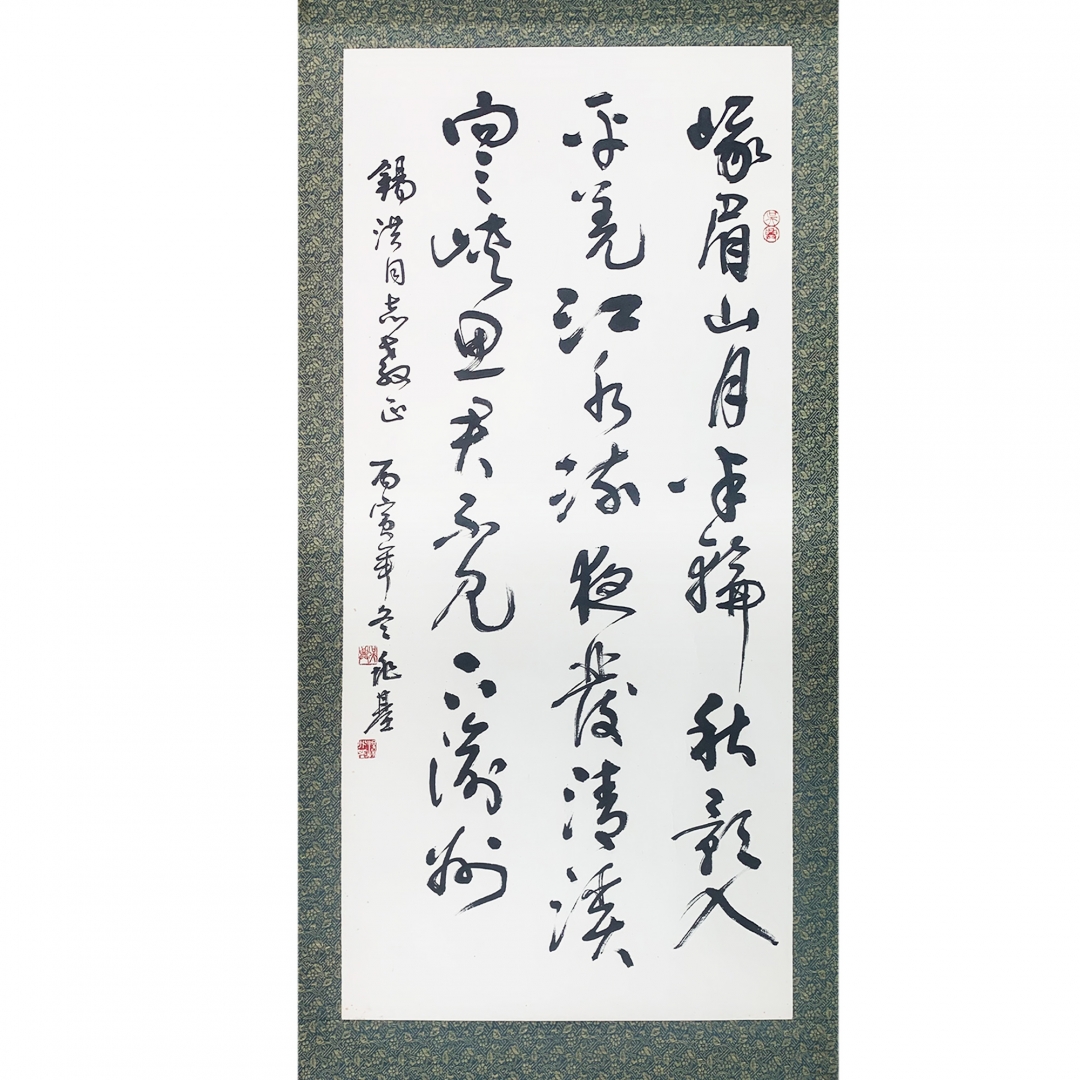 峨眉山月半輪秋影入
平羌江水流夜發清溪
向三峽思君不見下渝州
錫洪同志教正 丙寅年冬 基